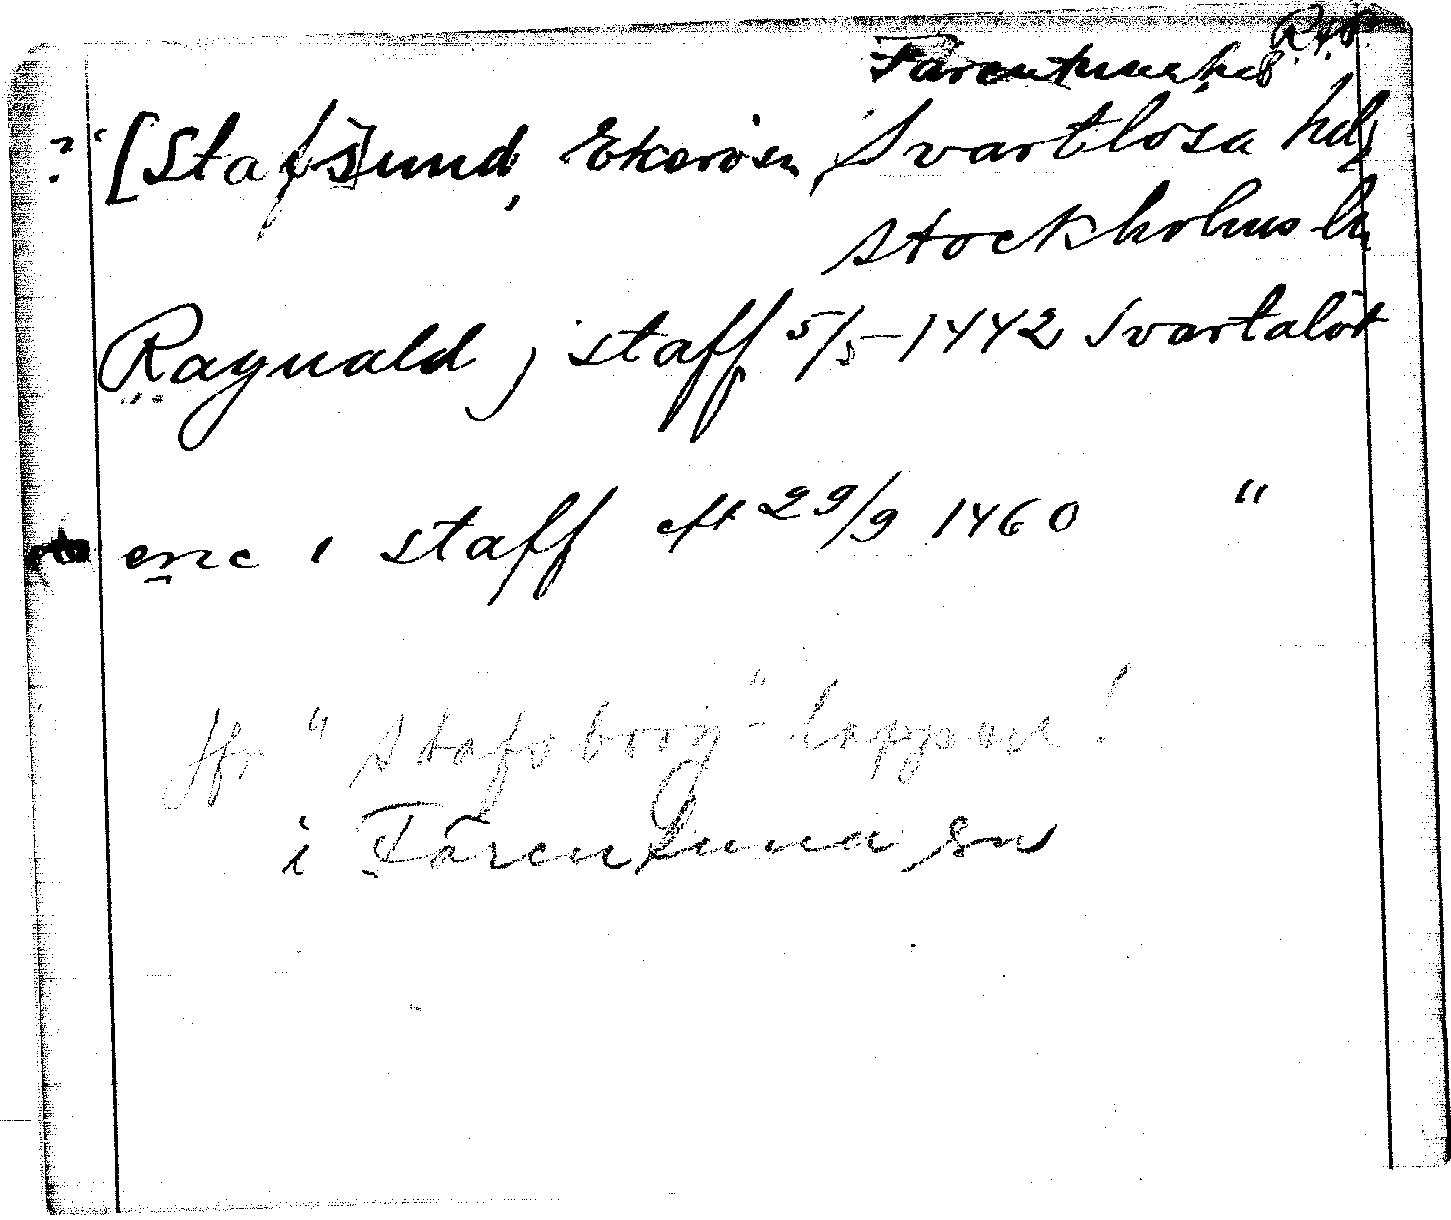 Färentuna hd
? [Stafsund, Ekerö sn, Svartlösa hd,
Stockholms ln
Ragnald j staff 5/5 1442 Svartalöt
ene i staff eft 29/9 1460 "
Jfr "Stafsborg"-lappen!
i Färentuna sn